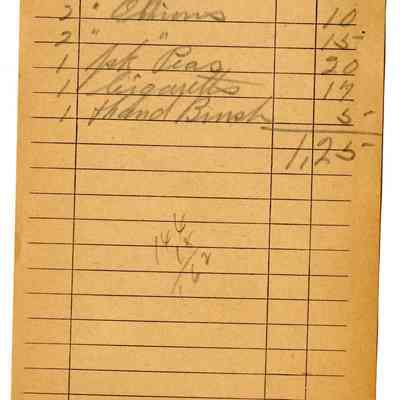 2 " Onions 10
2 " " 15
1 pk Peas 20
1 Cigaretts 17
1 Hand Brush 5
1,25
144